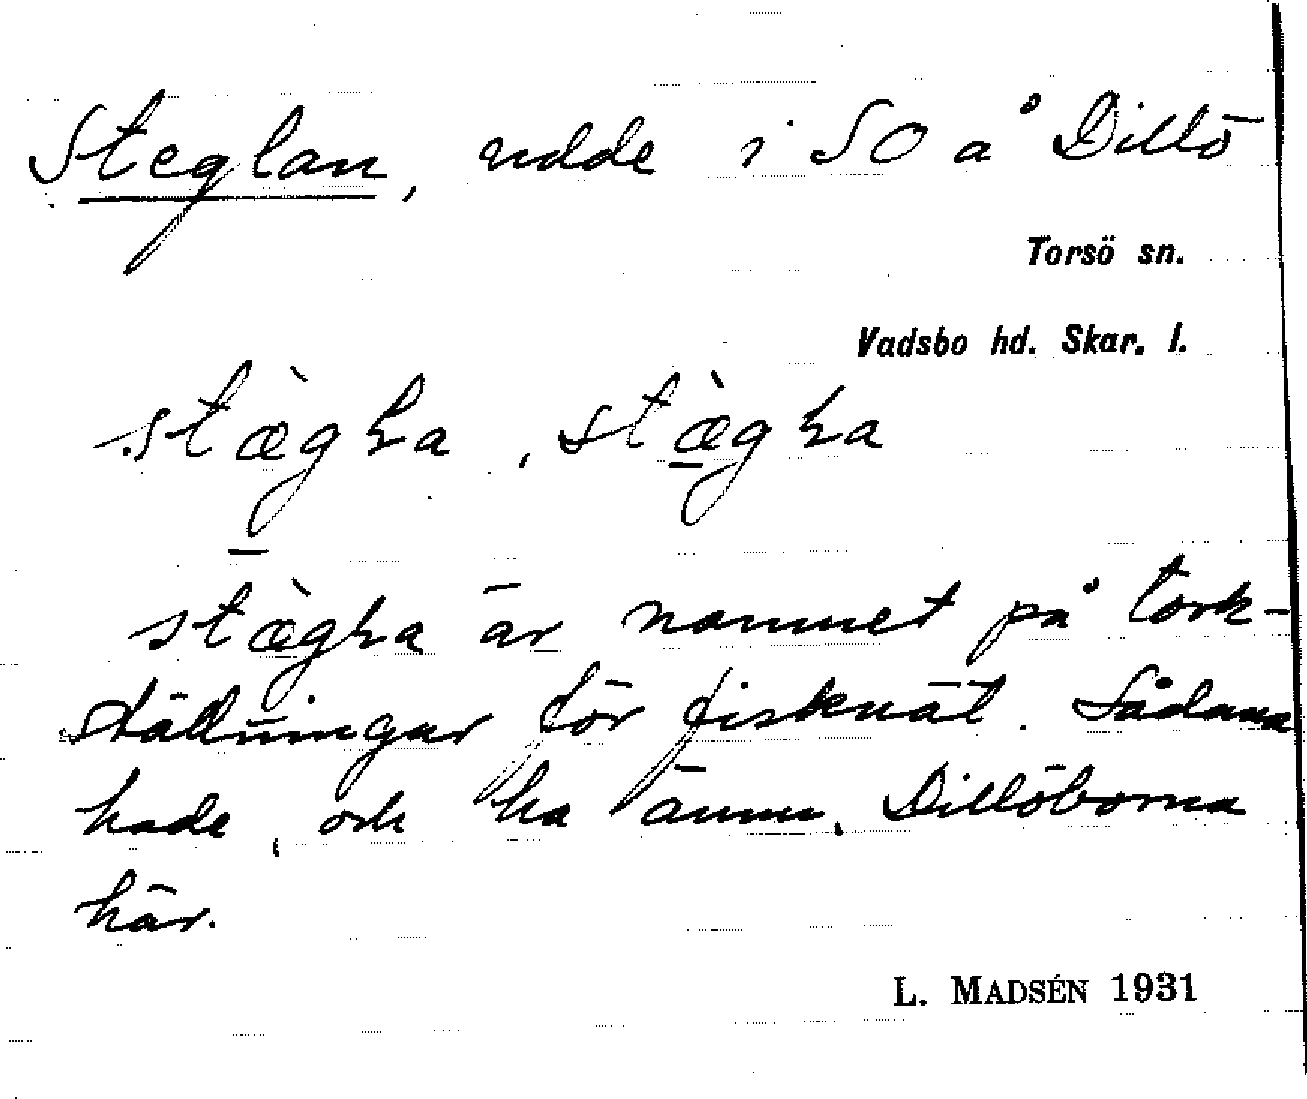 Steglan, udde i SO å Dillö
Torsö sn.
Vadsbo hd. Skar. l.
stæ̀gła, stæ̀gła
stæ̀gła är namnet på tork-
ställningar för fisknät. Sådana
hade, och ha ännu, Dillöborna
här.
L. MADSÉN 1931